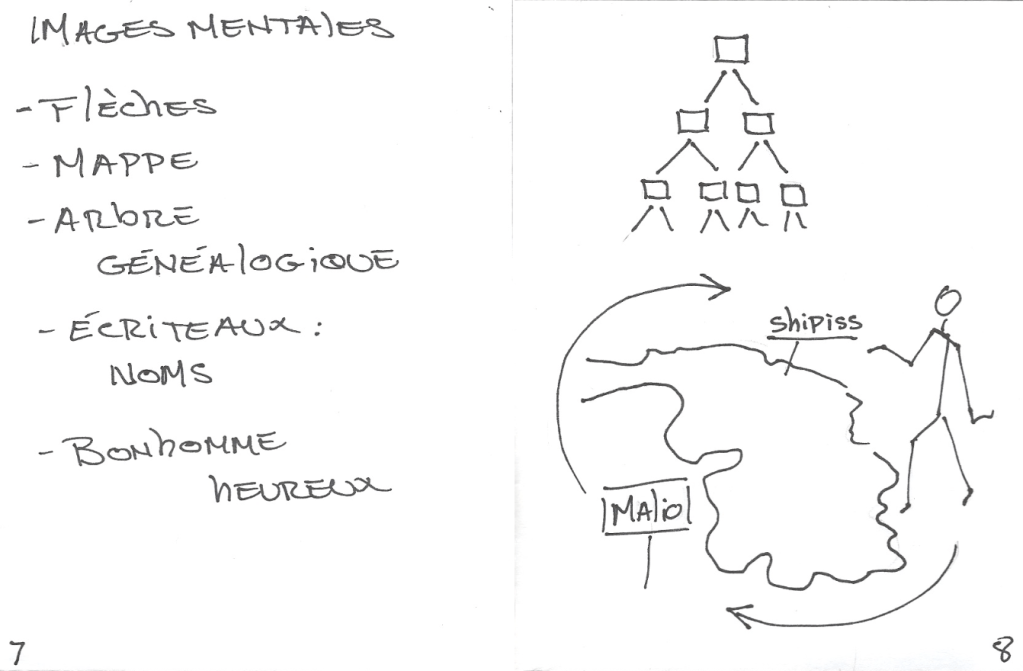 IMAGES MENTALES
- Flèches
- MAPPE
- ARbRE
GÉNÉAlOGiQUE
- ÉCRiTEAUX :
NOMS
- BONhOMME
hEUREUX
7
shipiss
MAliO
8